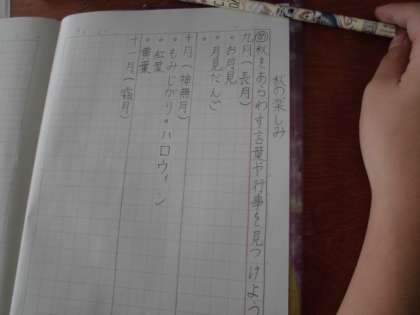 秋の楽しみ
問秋をあらわす言葉や行事を見つけよう
九月(長月)
・お月見
・月見だんご
・
十月(神無月)
・もみじがり・ハロウィン
・紅葉
・黄葉
十一月(霜月)